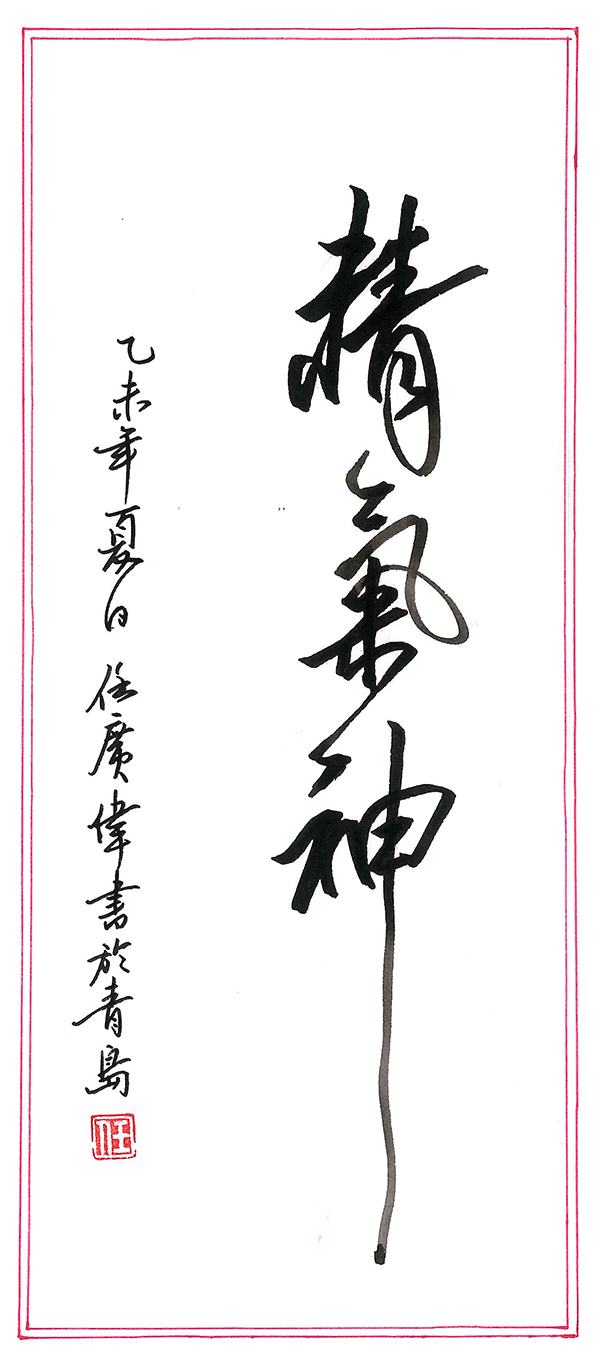 精氣神
乙未年夏日 任廣偉書於青島
任